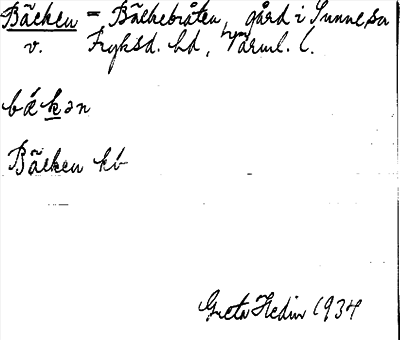 Bäcken = Bäckebråten, gård i Sunne sn
v. Fryksd. hd, Värml. l.
bǻkən
Bäcken kb
Greta Hedin 1934